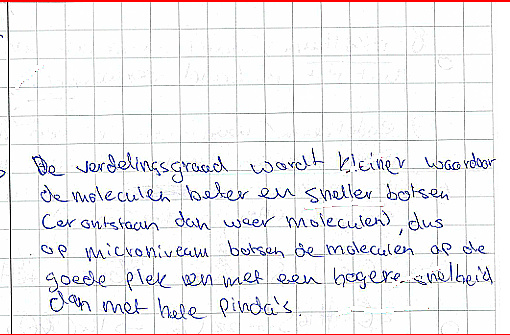 De verdelingsgraad wordt kleiner waardoor
de moleculen beter en sneller botsen
(er ontstaan dan weer moleculen), dus
op microniveau botsen de moleculen op de
goede plek en met een hogere snelheid
dan met hele pinda's.